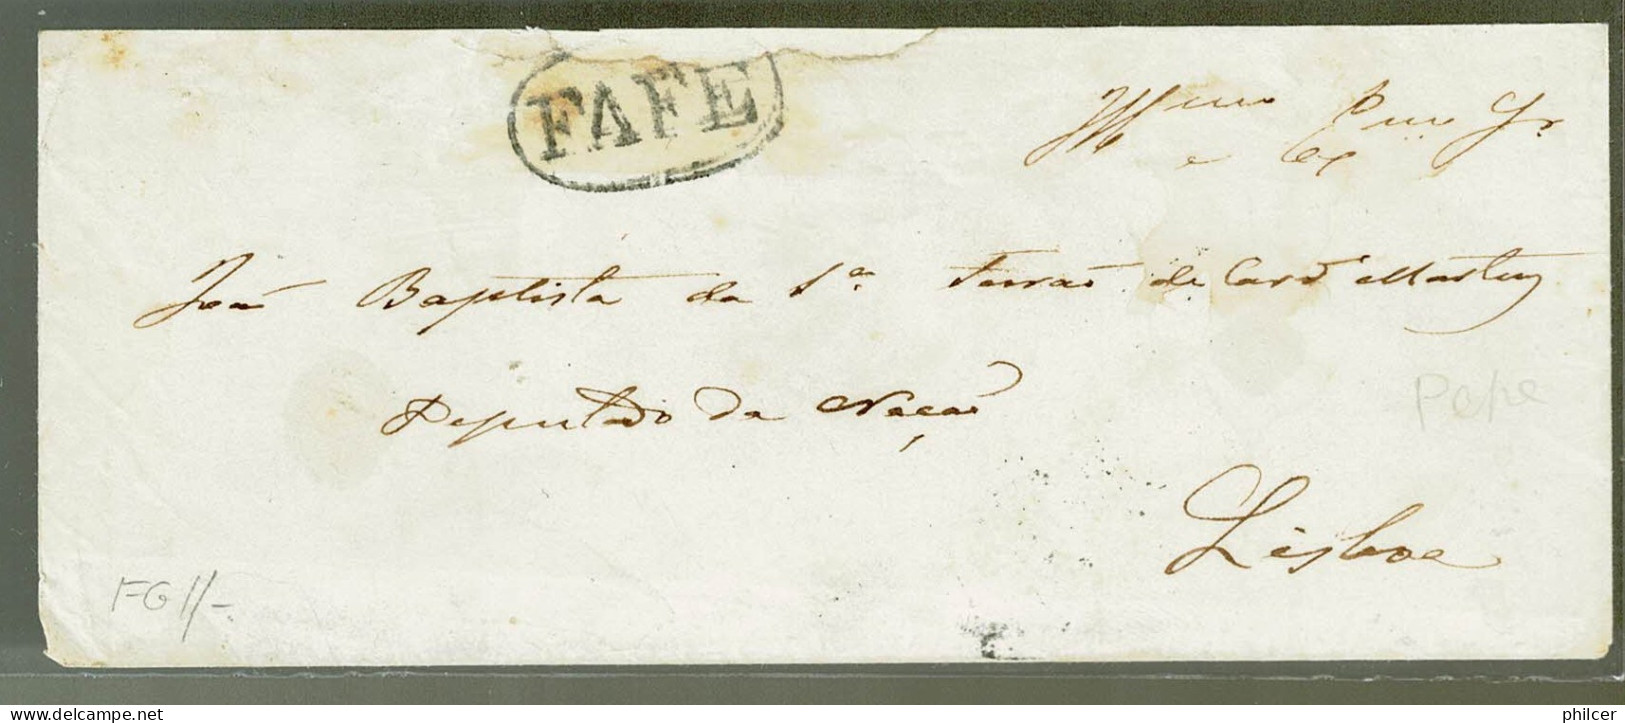 FAFE
Illmo e Exmo Snr Sr.
João Baptista da Sa. Ferrão de Carvo Martens
Deputado da Nação
Pepe
Lisboa
FG 11/-
delcampe.net
philcer